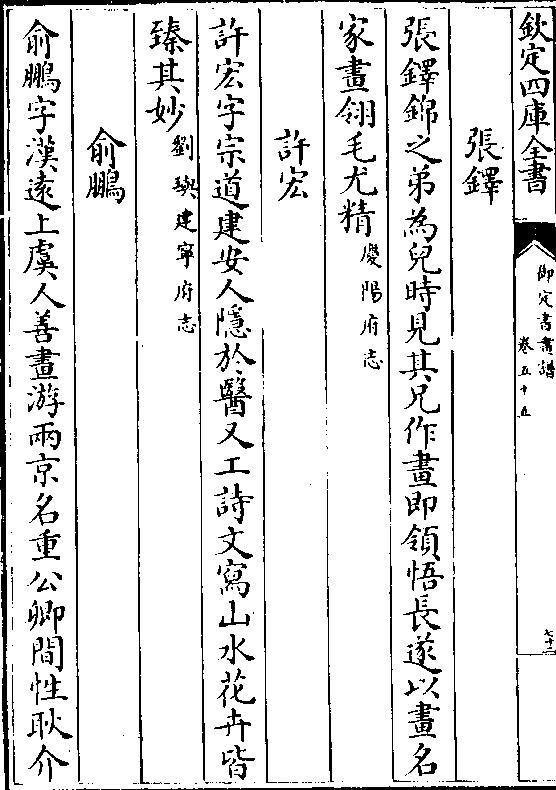 欽定四庫全書
御定書畫譜
卷五十五
七十二
張鐸
張鐸錦之弟為兒時見其兄作畫即領悟長遂以畫名
家畫翎毛尤精慶陽府志
許宏
許宏字宗道建安人隱於醫又工詩文寫山水花卉皆
臻其妙劉璵建寧府志
俞鵬
俞鵬字漢遠上虞人善畫游兩京名重公卿間性耿介